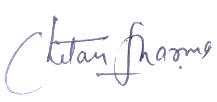 Chetan Sharma